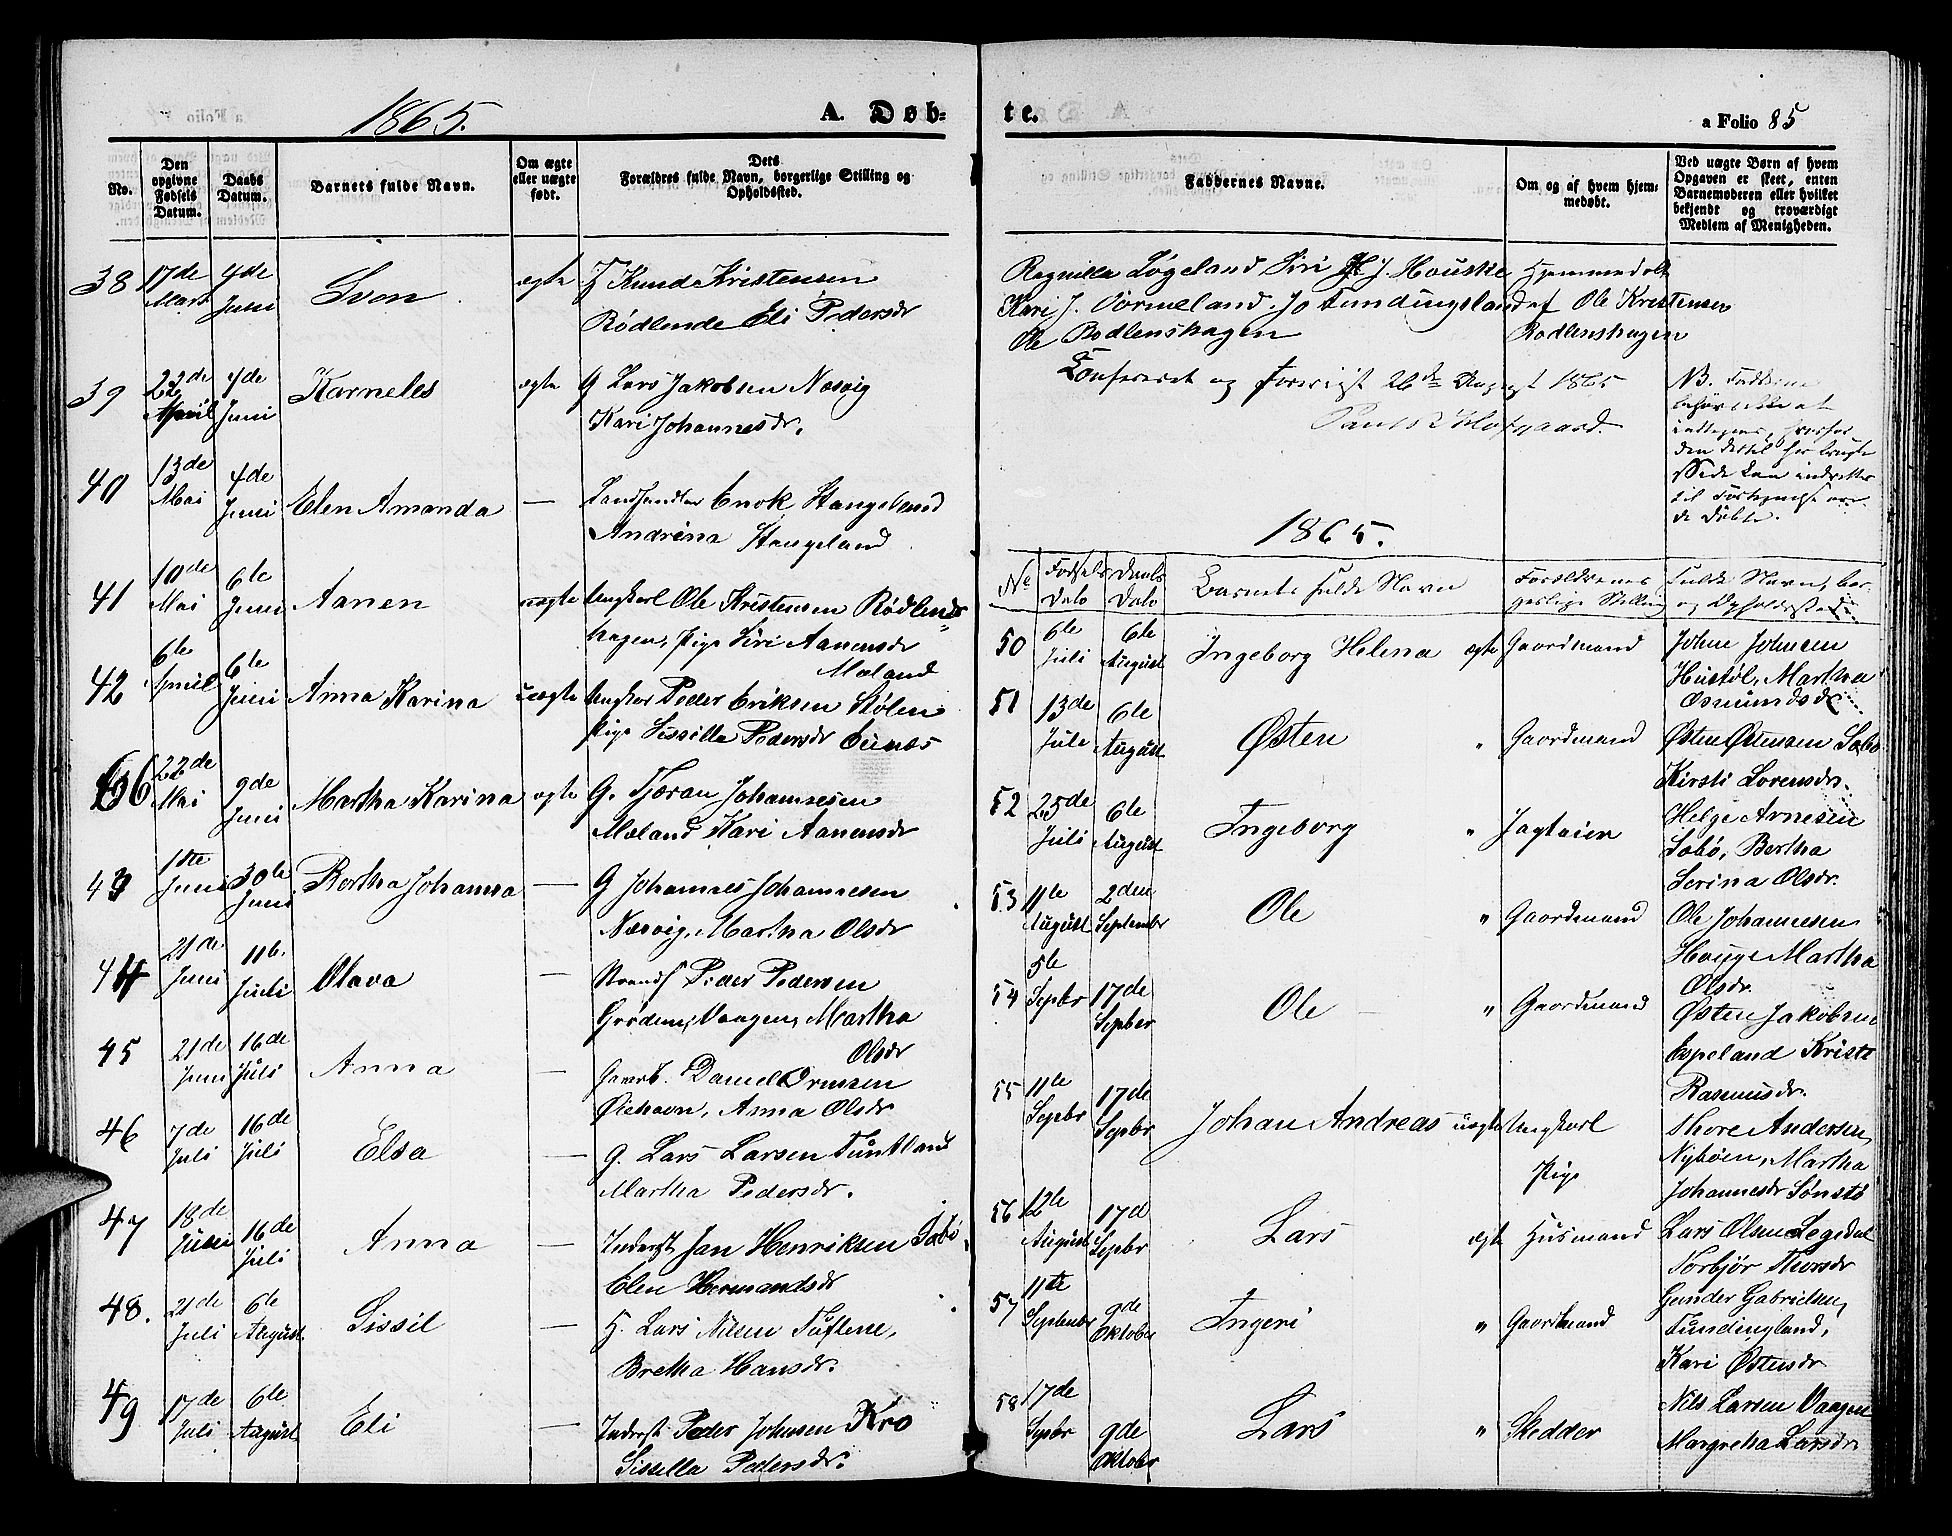 1865.
A. Døb-
te.
a Folio 85
No.
Den opgivne Fødsels Datum.
Daabs Datum.
Barnets fulde Navn.
Om ægte eller uægte født.
Dets Forældres fulde Navn, borgerlige Stilling og Opholdssted.
Faddernes Navne.
Om og af hvem hjemmedøbt.
Ved uægte Børn af hvem Opgaven er skeet, enten Barnemoderen eller hvilket bekjendt og troværdigt Medlem af Menigheden.
38 17de Mart 4de Juni Svon ægte Knud Kristensen
Rødlende Eli Pedersdr
39 22de April 4de Juni Karneles ægte G Lars Jakobsen Næsvig
Kari Johannesdr.
40 13de Mai 4de Juni Elen Amanda — Landhandler Enok Stangeland
Andrina Stangeland
41 10de Mai 6te Juni Aanen uægte Ungkarl Ole Kristensen Rødlends=
hagen, Pige Siri Aanensdr
Mæland
42 6te April 6te Juni Anna Karina uægte Ungkar Peder Eriksen Stølen
Pige Sissille Pedersdr
66 22de Mai 9de Juni Martha Karina ægte G. Tjøran Johannesen
Mæland Kari Aanensdr
43 1ste Juni 30te Juni Bertha Johanna — G Johannes Johannesen
Næsvig, Martha Olsdr
44 21de Juni 11te Juli Olava — Strands Peder Pedersen
Grøden, Vaagen, Martha
Olsdr
45 21de Juni 16de Juli Anna — Gaarb. Daniel Ormsen
Øiehavn, Anna Olsdr
46 7de Juli 16de Juli Elsa — G. Lars Larsen Tuntland
Martha Pedersdr.
47 18de Juni 16de Juli Anna — Inderst Jan Henriksen Sæbø,
Elen Hermandsdr
48. 21de Juli 6te August Sissil — H. Lars Nilsen Tuftene,
Bretha Hansdr.
49 17de Juli 6te August Eli — Inderst Peder Johnsen Kro
Sissella Pedersdr.
Ragnilla Løgeland Siri J. Houske Hjemmedøbt
Kari J. Vormeland. Jo Tundingsland af Ole Kristensen
Ole Rødlenshagen Rødlenshagen
Confereret og 26de August 1865
NB. Fadderne
behøver ikke at
indtegnes, hvorfor
den dertil før brugte
Side kan indrettes
til Fortegnelse over
de Døbte.
1865.
No Fødsels Dato Daabs Dato Barnets fulde Navn Forældrenes fulde Navn, borgerlige Stilling og Opholdssted
50 6te Juli 6te August Ingeborg Helena ægte Gaardmand John Johnsen
Hustøl, Martha
Osmundsdr
51 13de Jule 6te August Østen " Gaardmand Østen Østensen Sæbø
Kirsti Lorensdr.
52 25de Juli 6te August Ingeborg " Jagteier Helge Arnesen
Sæbø, Bertha
Serina Olsdr.
53 11te August 2den Septembr Ole " Gaardmand Ole Johannesen
Houge Martha
Olsdr.
54 5te Septbr 17de Septber Ole " Gaardmand Østen Jakobsen
Espeland Kristi
Rasmusdr.
55 11te Septbr 17de Septbr Johan Andreas uægte Ungkarl Thore Andersen,
Nybøen, Martha
Pige Johannesdr Sønstø
56 12te August 17d Septbr Lars ægte Husmand Lars Olsen Legedal
Torbjør Thorsdr
57 11te Septembr 9de Oktober Ingeri " Gaardmand Gunder Gabrielsen,
Tundingland,
Kari Østensdr
58 17de Septbr 9de Oktober Lars " Skedder Nils Larsen Vaagen
Margretha Larsdr